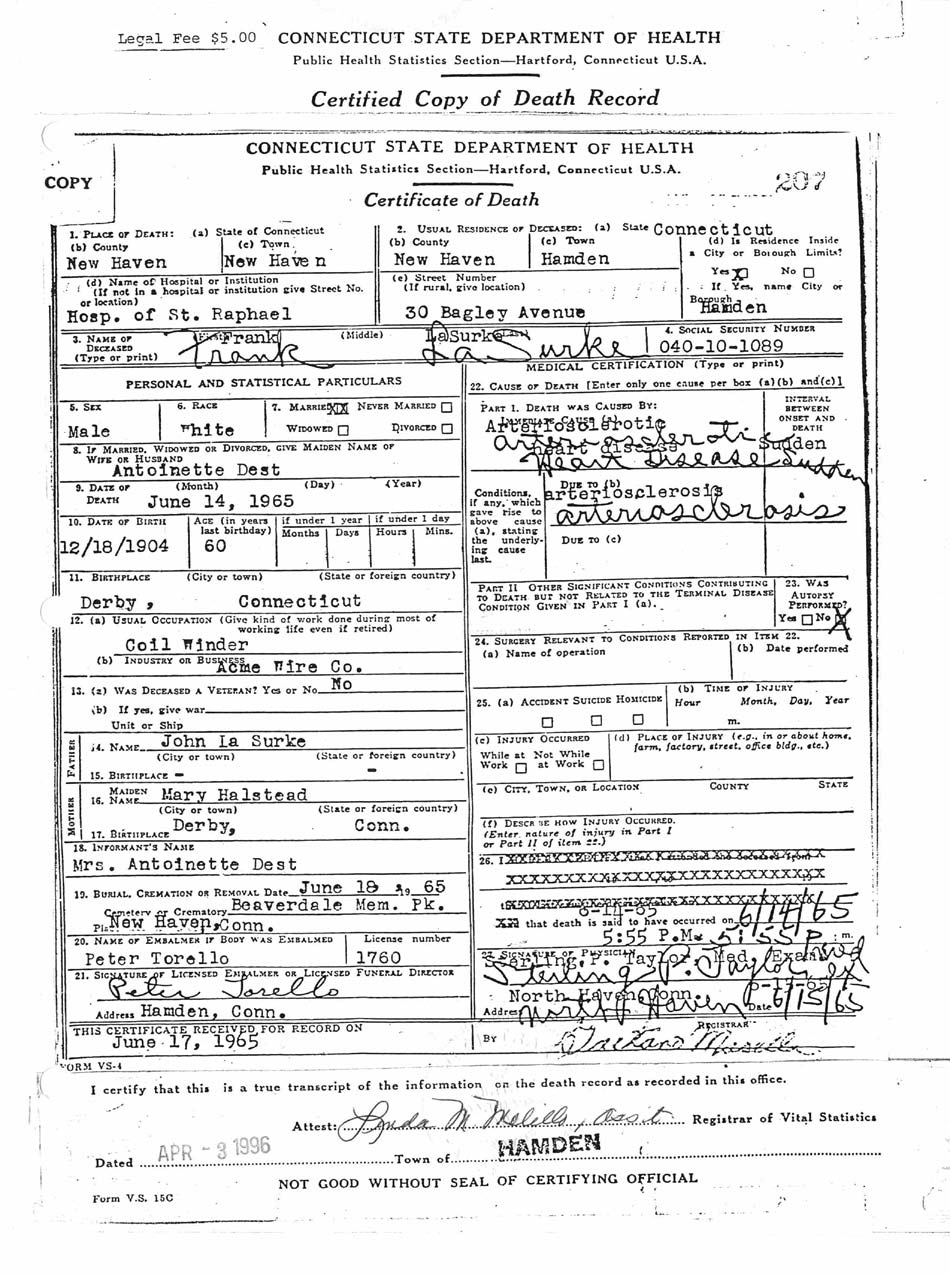 Legal Fee $5.00 CONNECTICUT STATE DEPARTMENT OF HEALTH
Public Health Statistics Section—Hartford, Connecticut U.S.A.
Certified Copy of Death Record
CONNECTICUT STATE DEPARTMENT OF HEALTH
COPY
Public Health Statistics Section—Hartford, Connecticut U.S.A.
207
Certificate of Death
1. PLACE OF DEATH: (a) State of Connecticut
(b) County (c) Town
New Haven New Haven
(d) Name of Hospital or Institution
(If not in a hospital or institution give Street No.
or location)
Hosp. of St. Raphael
2. USUAL RESIDENCE OF DECEASED: (a) State Connecticut
(b) County (c) Town
New Haven Hamden
(d) Is Residence Inside
a City or Borough Limits?
Yes X No
If Yes, name City or
Borough
Hamden
(e) Street Number
(If rural, give location)
30 Bagley Avenue
3. NAME OF
DECEASED
(Type or print)
(First) Frank (Middle) LaSurke (Last)
Frank LaSurke
4. SOCIAL SECURITY NUMBER
040-10-1089
PERSONAL AND STATISTICAL PARTICULARS
5. SEX 6. RACE 7. MARRIED XX NEVER MARRIED
Male White WIDOWED DIVORCED
8. IF MARRIED, WIDOWED OR DIVORCED, GIVE MAIDEN NAME OF
WIFE OR HUSBAND
Antoinette Dest
9. DATE OF (Month) (Day) (Year)
DEATH June 14, 1965
10. DATE OF BIRTH AGE (in years last birthday) if under 1 year if under 1 day
Months Days Hours Mins.
12/18/1904 60
11. BIRTHPLACE (City or town) (State or foreign country)
Derby, Connecticut
12. (a) USUAL OCCUPATION (Give kind of work done during most of
working life even if retired)
Coil Winder
(b) INDUSTRY OR BUSINESS
Acme Wire Co.
13. (a) WAS DECEASED A VETERAN? Yes or No No
(b) If yes, give war
Unit or Ship
FATHER
14. NAME John La Surke
(City or town) (State or foreign country)
15. BIRTHPLACE - -
MOTHER
MAIDEN
16. NAME Mary Halstead
(City or town) (State or foreign country)
17. BIRTHPLACE Derby, Conn.
18. INFORMANT'S NAME
Mrs. Antoinette Dest
19. BURIAL, CREMATION OR REMOVAL Date June 18 19 65
Cemetery or Crematory Beaverdale Mem. Pk.
New Haven, Conn.
20. NAME OF EMBALMER IF BODY WAS EMBALMED License number
Peter Torello 1760
21. SIGNATURE OF LICENSED EMBALMER OR LICENSED FUNERAL DIRECTOR
Peter Torello
Address Hamden, Conn.
THIS CERTIFICATE RECEIVED FOR RECORD ON
June 17, 1965
FORM VS-4
MEDICAL CERTIFICATION (Type or print)
22. CAUSE OF DEATH [Enter only one cause per box (a)(b) and(c)]
PART I. DEATH WAS CAUSED BY:
INTERVAL
BETWEEN
ONSET AND
DEATH
IMMEDIATE CAUSE (a)
Arterosclerotic
heart disease Sudden
Heart Disease Sudden
Conditions,
if any, which
gave rise to
above cause
(a), stating
the underly-
ing cause
last.
DUE TO (b)
arteriosclerosis
arteriosclerosis
DUE TO (c)
PART II OTHER SIGNIFICANT CONDITIONS CONTRIBUTING
TO DEATH BUT NOT RELATED TO THE TERMINAL DISEASE
CONDITION GIVEN IN PART I (a).
23. WAS
AUTOPSY
PERFORMED?
Yes No X
24. SURGERY RELEVANT TO CONDITIONS REPORTED IN ITEM 22.
(a) Name of operation (b) Date performed
25. (a) ACCIDENT SUICIDE HOMICIDE
(b) TIME OF INJURY
Hour Month, Day, Year
m.
(c) INJURY OCCURRED
While at Work Not While at Work
(d) PLACE OF INJURY (e.g., in or about home,
farm, factory, street, office bldg., etc.)
(e) CITY, TOWN, OR LOCATION COUNTY STATE
(f) DESCRIBE HOW INJURY OCCURRED.
(Enter nature of injury in Part I
or Part II of item 22.)
26.
that death is said to have occurred on 6/14/65
5:55 P.M. 5:55 P m.
SIGNATURE OF PHYSICIAN
Sterling P. Taylor Med. Exam
Sterling P. Taylor
North Haven Conn.
Address North Haven Date 6/15/65
REGISTRAR
BY
I certify that this is a true transcript of the information on the death record as recorded in this office.
Attest: Lynda M Melillo, Asst. Registrar of Vital Statistics
Dated APR - 3 1996 Town of HAMDEN
NOT GOOD WITHOUT SEAL OF CERTIFYING OFFICIAL
Form V.S. 15C